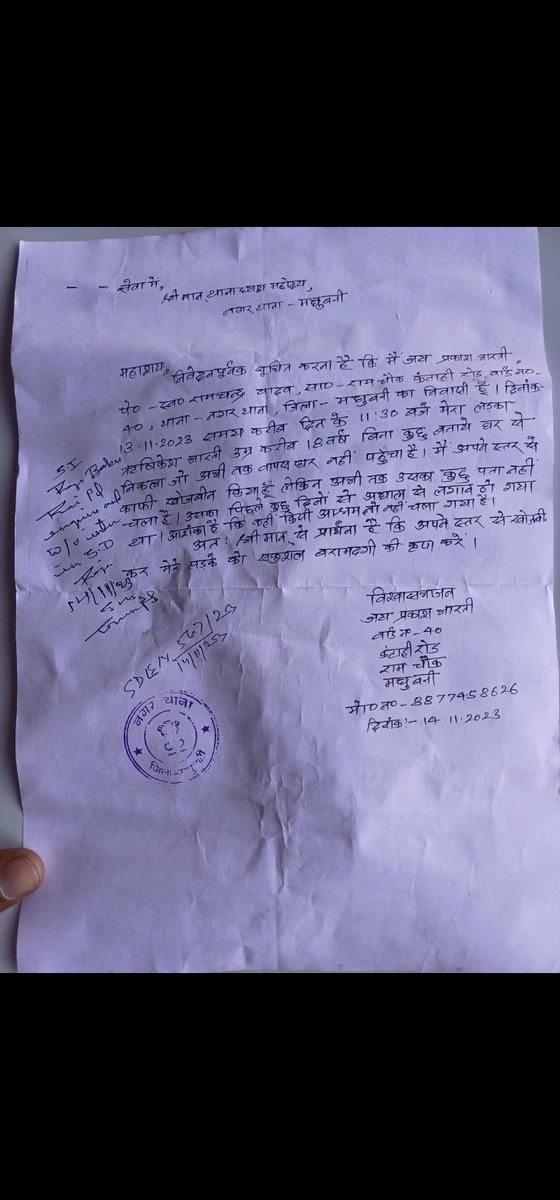 सेवा में,
श्री मान थानाध्यक्ष महोदय,
नगर थाना - मधुबनी
महाशय,
निवेदनपूर्वक सूचित करना है कि मैं जय प्रकाश भारती,
पे० - स्व० रामचन्द्र यादव, सा० - राम चौक कंटाही रोड, वार्ड न०-
40, थाना - नगर थाना, जिला - मधुबनी का निवासी हूँ। दिनांक-
13.11.2023 समय करीब दिन के 11:30 बजे मेरा लड़का
ऋषिकेश भारती उम्र करीब 18 वर्ष बिना कुछ बताये घर से
निकला जो अभी तक वापस घर नहीं पहुँचा है। मैं अपने स्तर से
काफी खोजबीन किया हूँ लेकिन अभी तक उसका कुछ पता नहीं
चला है। उसका पिछले कुछ दिनों से अध्यात्म से लगाव हो गया
था। आशंका है कि कहीं किसी आश्रम तो नहीं चला गया है।
अतः श्री मान् से प्रार्थना है कि अपने स्तर से खोजबीन
कर मेरे लड़के को सकुशल बरामदगी की कृपा करें।
S.I
विश्वासभाजन
जय प्रकाश भारती
वार्ड न० - 40
कंटाही रोड
राम चौक
मधुबनी
मो० न० - 8877458626
दिनांक:- 14.11.2023
14/11/23
नगर थाना
जिला-मधुबनी